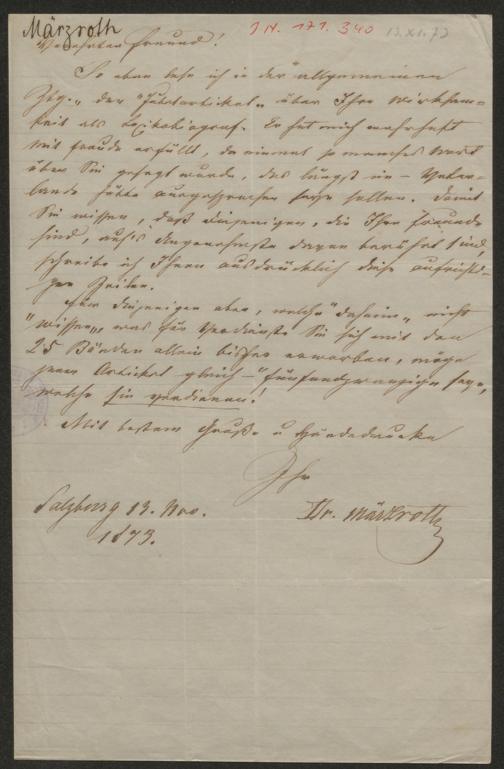 Märzroth
I N. 171.340
13.XI.73
Verehrter Freund!
So eben lese ich in der "Allgemeinen
Ztg." den "Jubelartikel" über Ihre Wirksam-
keit als Lexikobiograf. Er hat mich wahrhaft
mit Freude erfüllt, da einmal so manches Wort
über Sie gesagt wurde, das längst im Vater-
lande hätte ausgesprochen sollen. Damit
Sie wissen, daß diejenigen, die Ihre Freunde
sind, auf's Angenehmste davon berührt sind,
schreibe ich Ihnen ausdrücklich diese aufrichti-
gen Zeilen.
Für diejenigen aber, welche "daheim" nicht
"wissen", was für Verdienste Sie sich mit den
25 Bänden allein bisher erworben, möge
jener Artikel gleich "fünfundzwanzig"
welche sie verdienen!
Mit bestem Gruße u Händedrucke
Ihr
Dr. Märzroth
Salzburg 13. Nov.
1873.